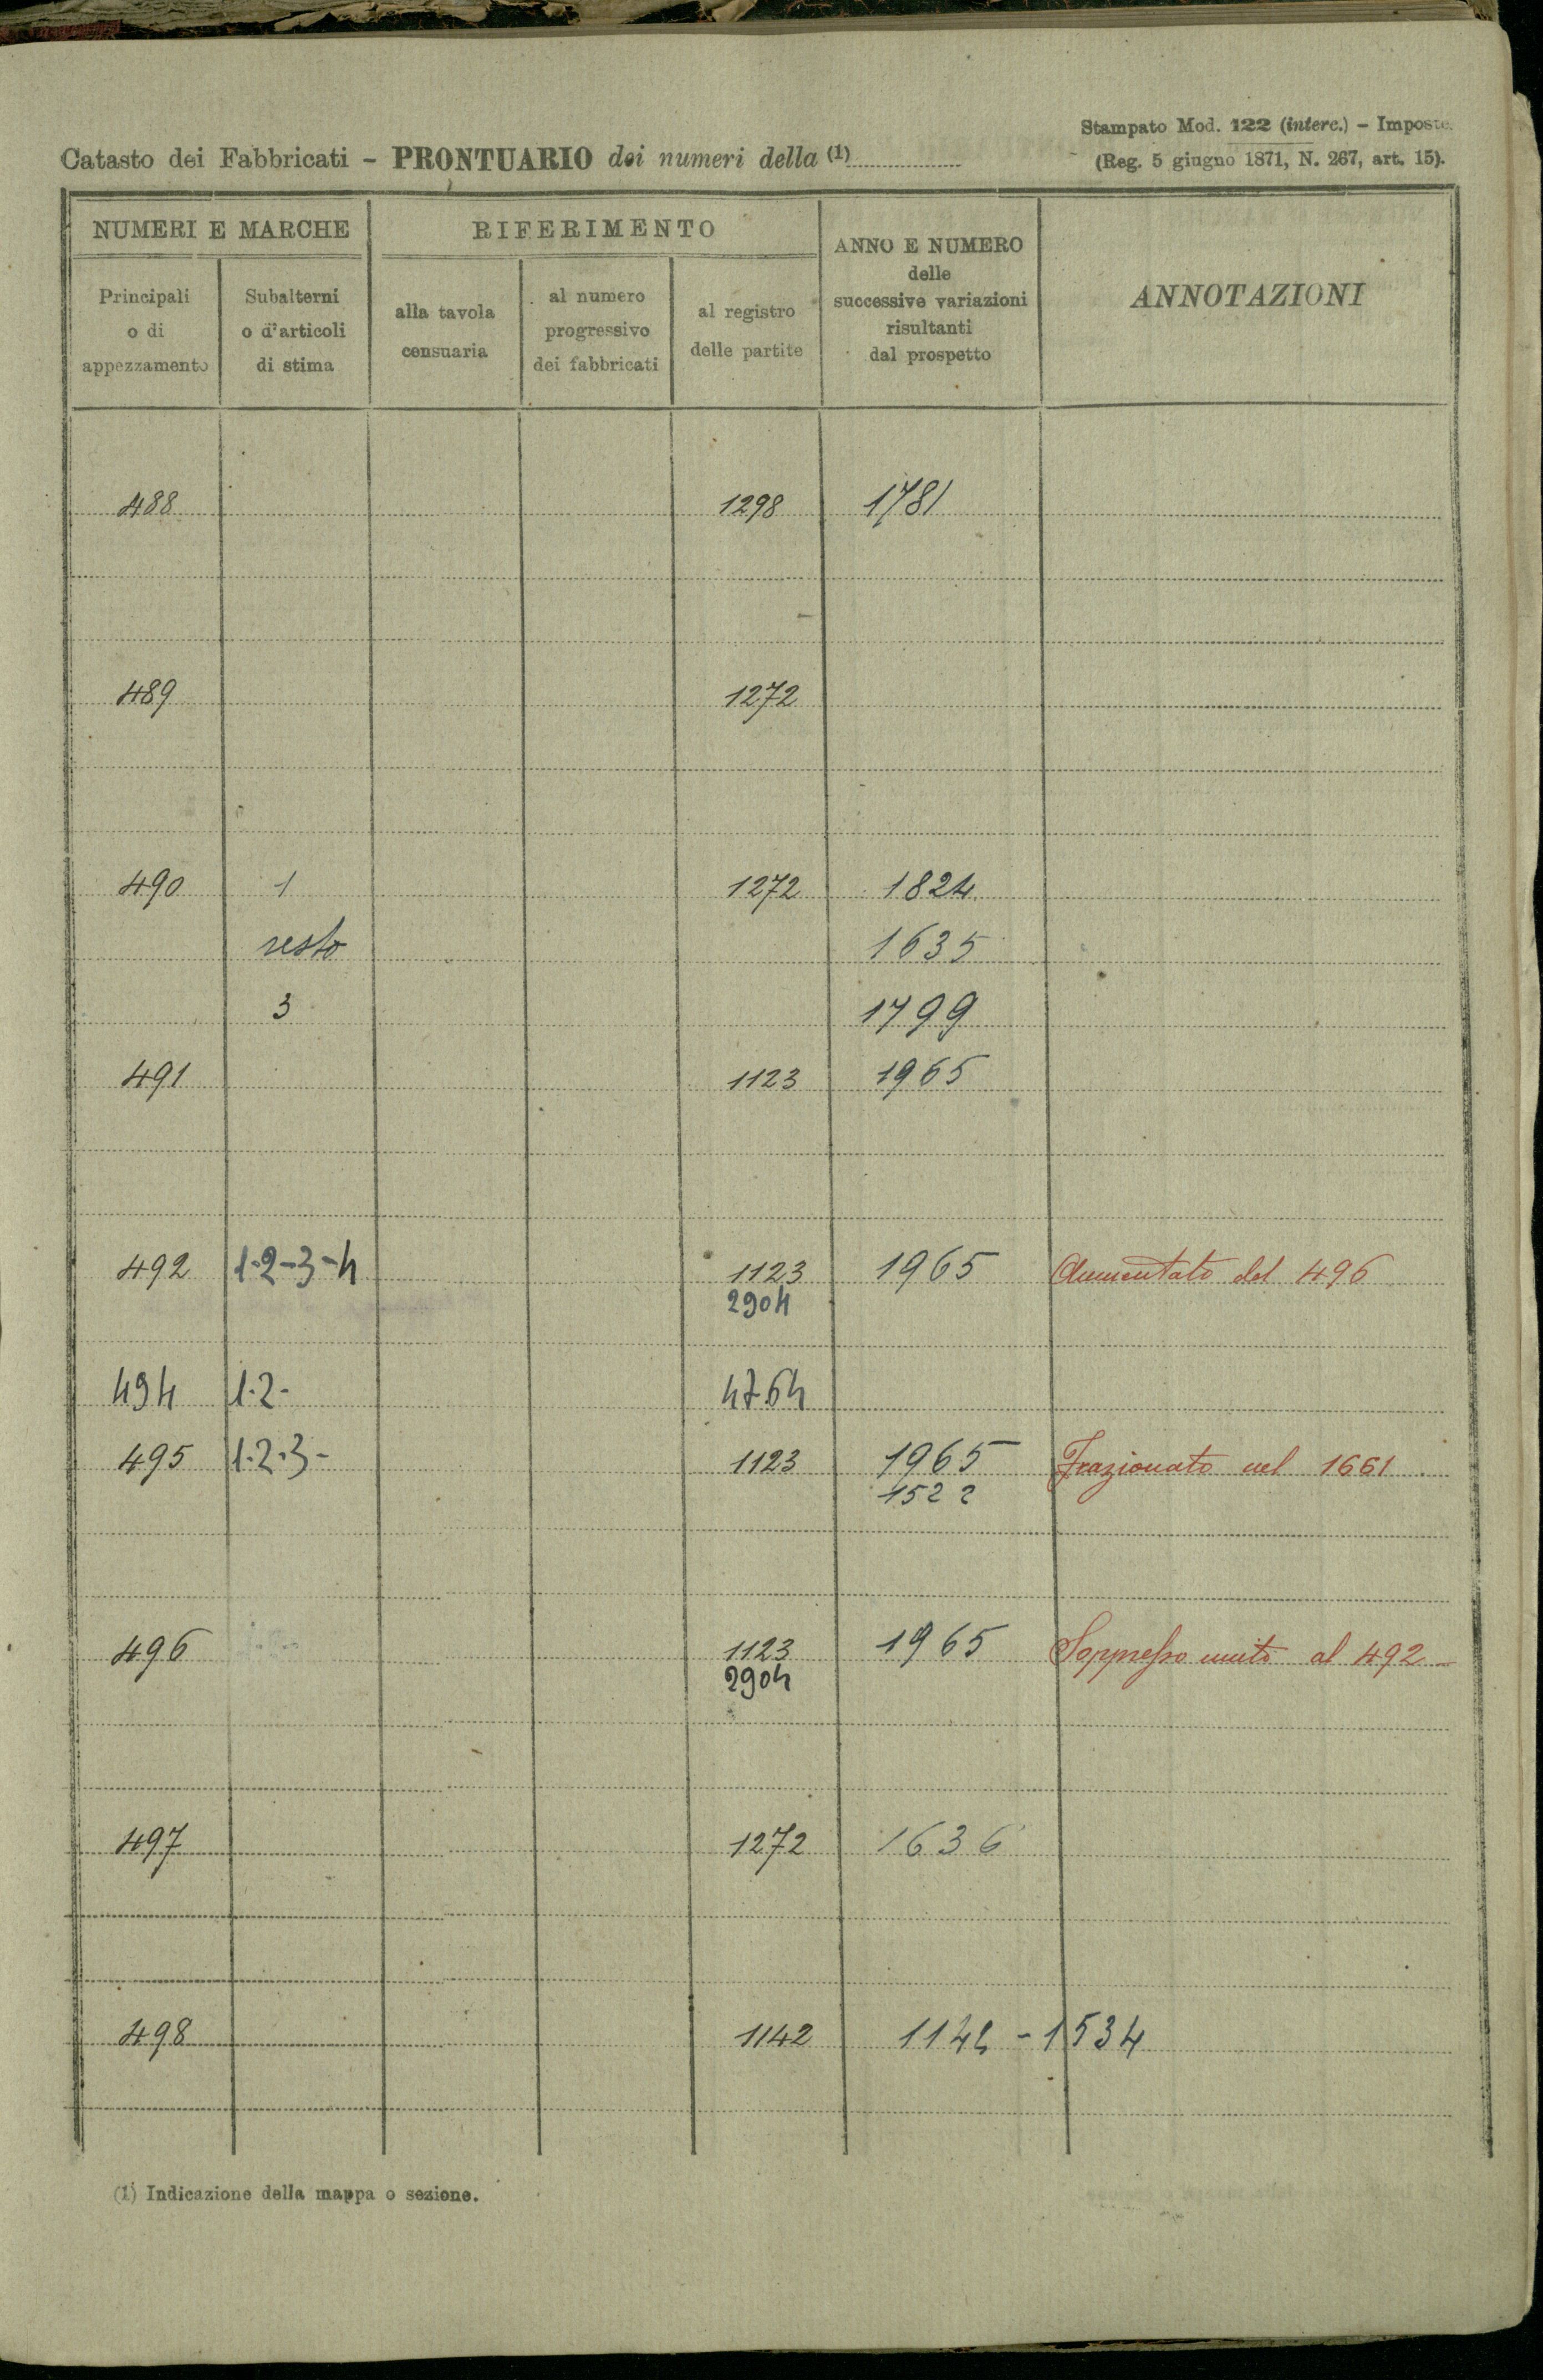 Stampato Mod. 122 (interc.) - Imposte.
Catasto dei Fabbricati - PRONTUARIO dei numeri della (1)
(Reg. 5 giugno 1871, N. 267, art. 15).
NUMERI E MARCHE
RIFERIMENTO
ANNO E NUMERO
delle
successive variazioni
risultanti
dal prospetto
ANNOTAZIONI
Principali
o di
appezzamento
Subalterni
o d'articoli
di stima
alla tavola
censuaria
al numero
progressivo
dei fabbricati
al registro
delle partite
488 1298 1781
489 1272
490 1 1272 1824
resto 1635
3 1799
491 1123 1965
492 1-2-3-4 1123 1965 Aumentato del 496
2904
494 1-2- 4764
495 1-2-3- 1123 1965 Frazionato nel 1661
1522
496 1123 1965 Soppresso unito al 492-
2904
497 1272 1636
498 1142 1142 - 1534
(1) Indicazione della mappa o sezione.